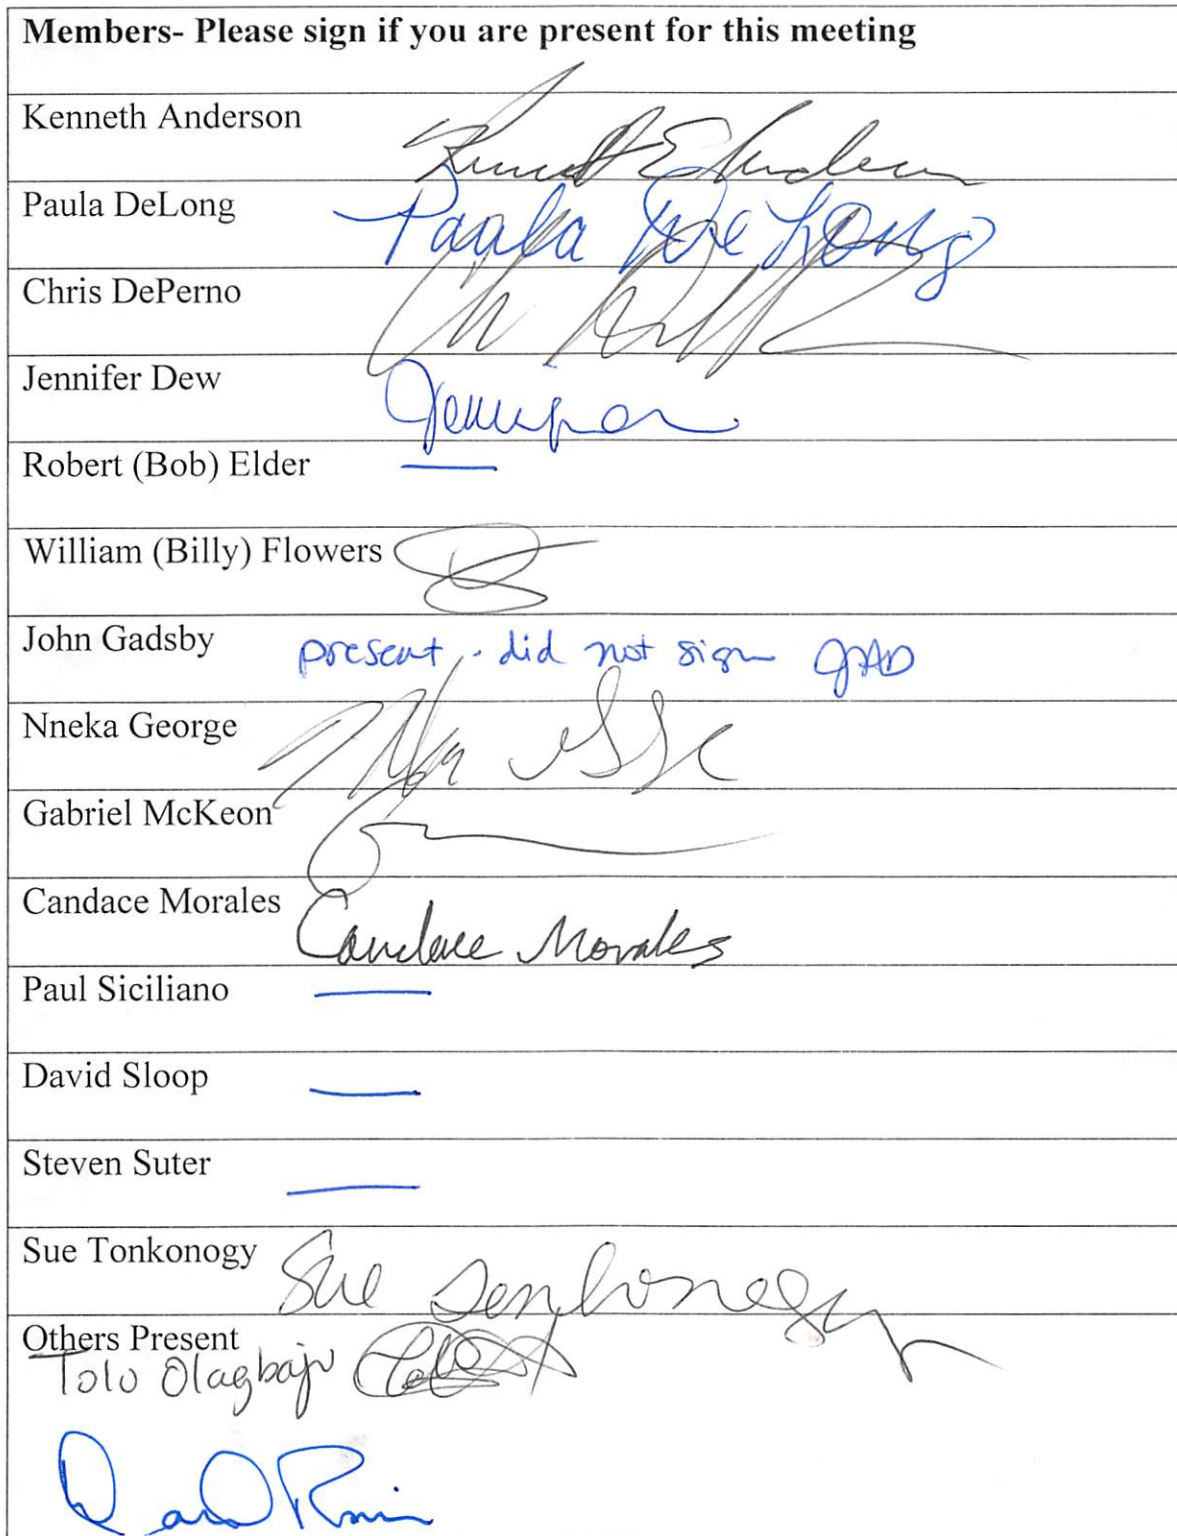 Members- Please sign if you are present for this meeting
Kenneth Anderson
Paula DeLong Paula DeLong
Chris DePerno
Jennifer Dew
Robert (Bob) Elder —
William (Billy) Flowers
John Gadsby present - did not sign
Nneka George
Gabriel McKeon
Candace Morales Candace Morales
Paul Siciliano —
David Sloop —
Steven Suter —
Sue Tonkonogy Sue Tonkonogy
Others Present
Tolu Olagbaju